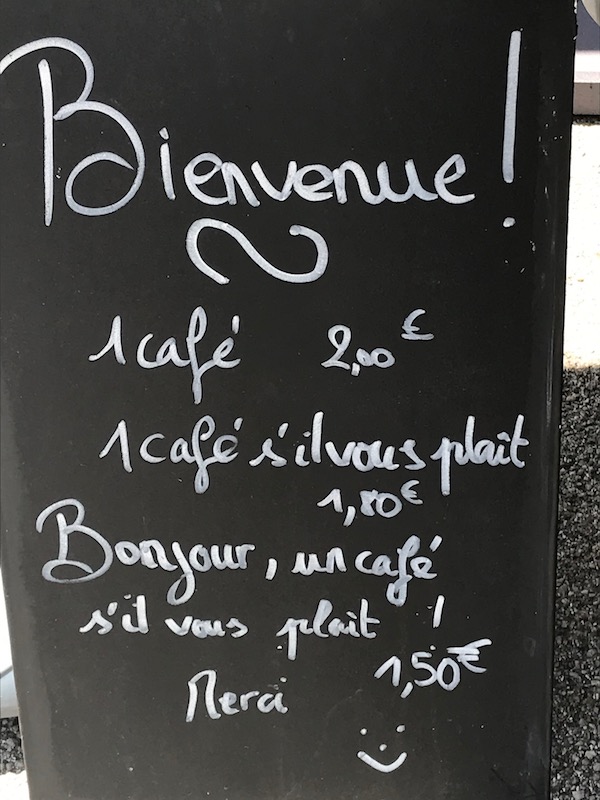 Bienvenue !
1 café 2,00 €
1 café s'il vous plaît
1,80 €
Bonjour, un café
s'il vous plait !
1,50 €
Merci